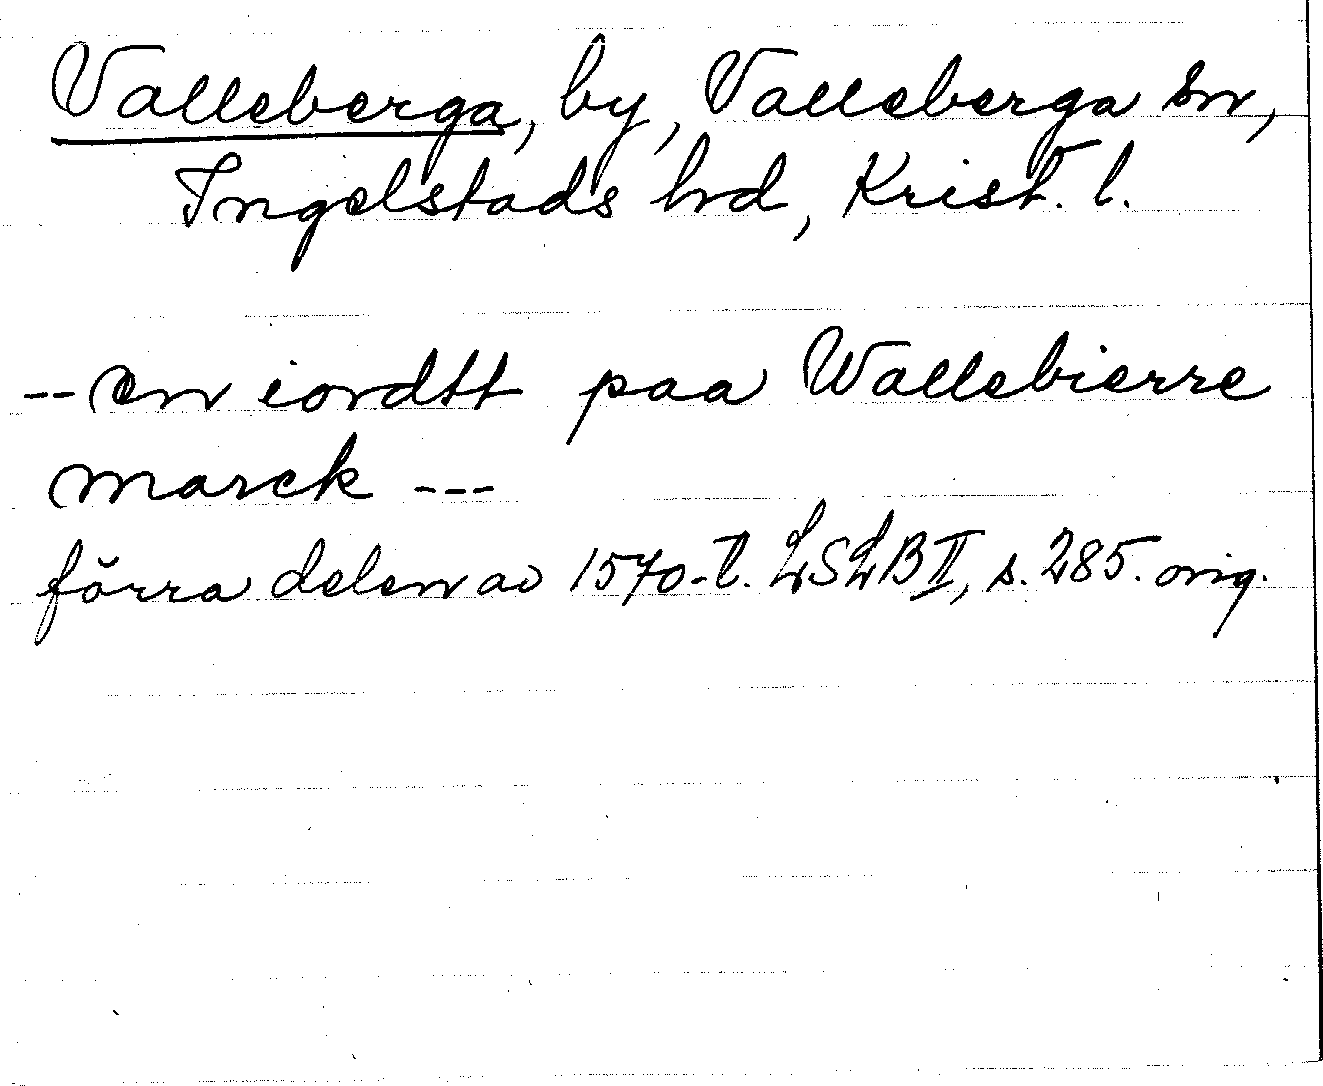 Valleberga, by, Valleberga sn,
Ingelstads hd, Krist. l.
-- en iordtt paa Wallebierre
marck ---
förra delen av 1570-t. LSLB II, s. 285. orig.